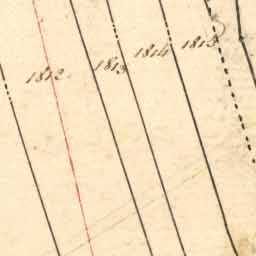 1812.
1813
1814
1815